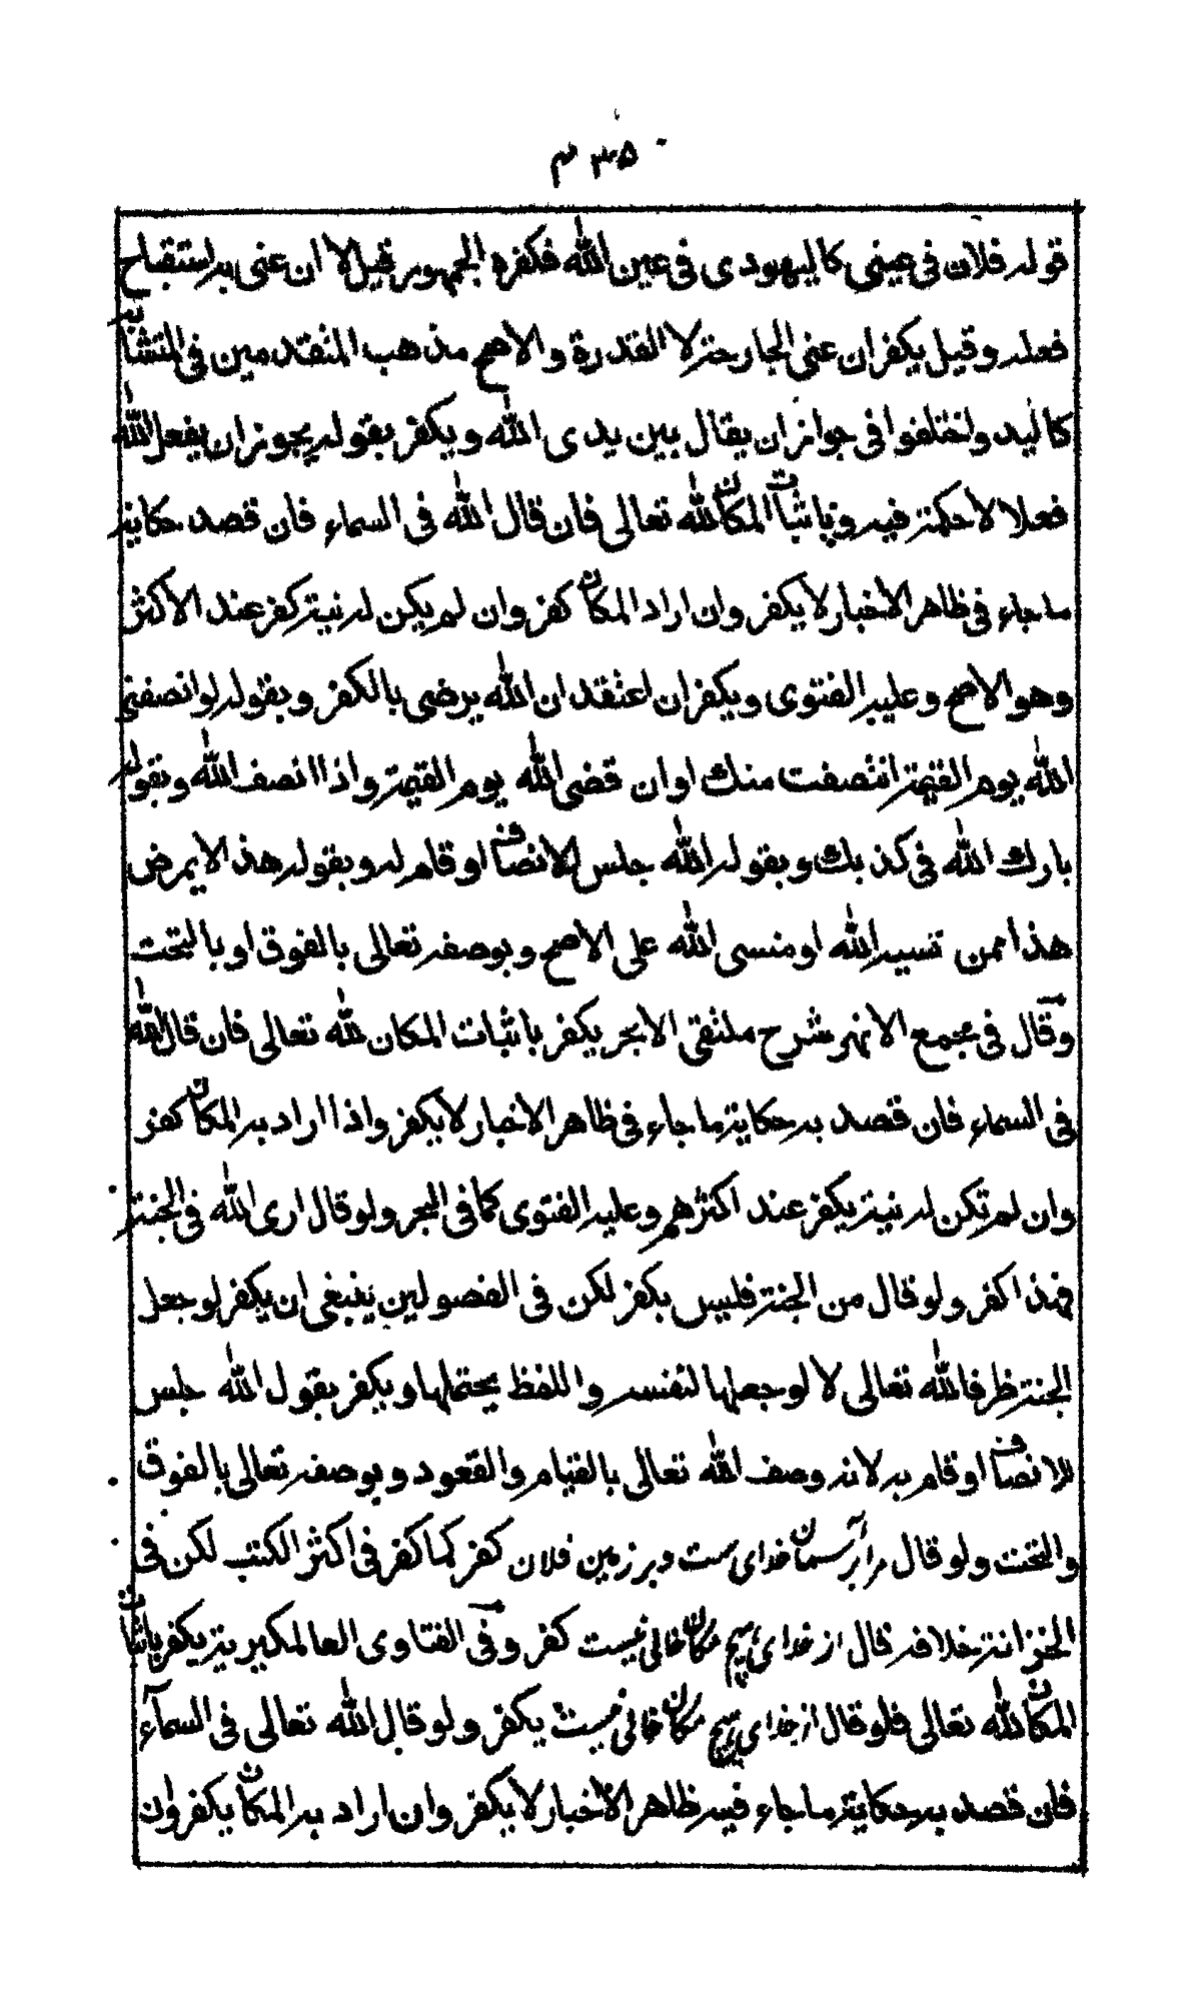 ۳۵۰ م
قوله فلان فى عينى كاليهودى فى عين الله فكفره الجمهور قيل لا ان عنى به استقباح
فعله وقيل يكفر ان عنى الجارحة لا القدرة والاصح مذهب المتقدمين فى المتشابه
كاليد واختلفوا فى جواز ان يقال بين يدى الله ويكفر بقوله يجوز ان يفعل الله
فعلا لا حكمة فيه وباثبات المكان لله تعالى فان قال الله فى السماء فان قصد حكاية
ما جاء فى ظاهر الاخبار لا يكفر وان اراد المكان كفر وان لم يكن له نية كفر عند الاكثر
وهو الاصح وعليه الفتوى ويكفر ان اعتقد ان الله يرضى بالكفر وبقوله لو انصفنى
الله يوم القيمة انتصفت منك او ان قضى الله يوم القيمة واذا انصف الله وبقوله
بارك الله فى كذبك وبقوله الله جلس للانصاف او قام له وبقوله هذا لا يمرض
هذا ممن نسيه الله او منسى الله على الاصح وبوصفه تعالى بالفوق او بالتحت
وقال فى مجمع الانهر شرح ملتقى الابحر يكفر باثبات المكان لله تعالى فان قال الله
فى السماء فان قصد به حكاية ما جاء فى ظاهر الاخبار لا يكفر واذا اراد به المكان كفر
وان لم تكن له نية يكفر عند اكثرهم وعليه الفتوى كما فى البحر ولو قال ارى الله فى الجنة
فهذا كفر ولو قال من الجنة فليس بكفر لكن فى الفصولين ينبغى ان يكفر لو جعل
الجنة ظرفا لله تعالى لا لو جعلها لنفسه واللفظ يحتملها ويكفر بقول الله جلس
للانصاف او قام به لانه وصف الله تعالى بالقيام والقعود وبوصفه تعالى بالفوق
والتحت ولو قال مرا بر آسمان خداى ست وبر زمين فلان كفر كما كفر فى اكثر الكتب لكن فى
الخزانة خلافه قال از خداى هيچ مكان خالى نيست كفر وفى الفتاوى العالمكيرية يكفر باثبات
المكان لله تعالى فلو قال از خداى هيچ مكان خالى نيست يكفر ولو قال الله تعالى فى السماء
فان قصد به حكاية ما جاء فيه ظاهر الاخبار لا يكفر وان اراد به المكان يكفر وان